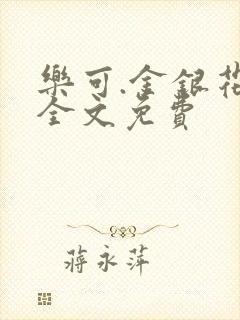 樂可.金銀花
全文免費
蔣永萍